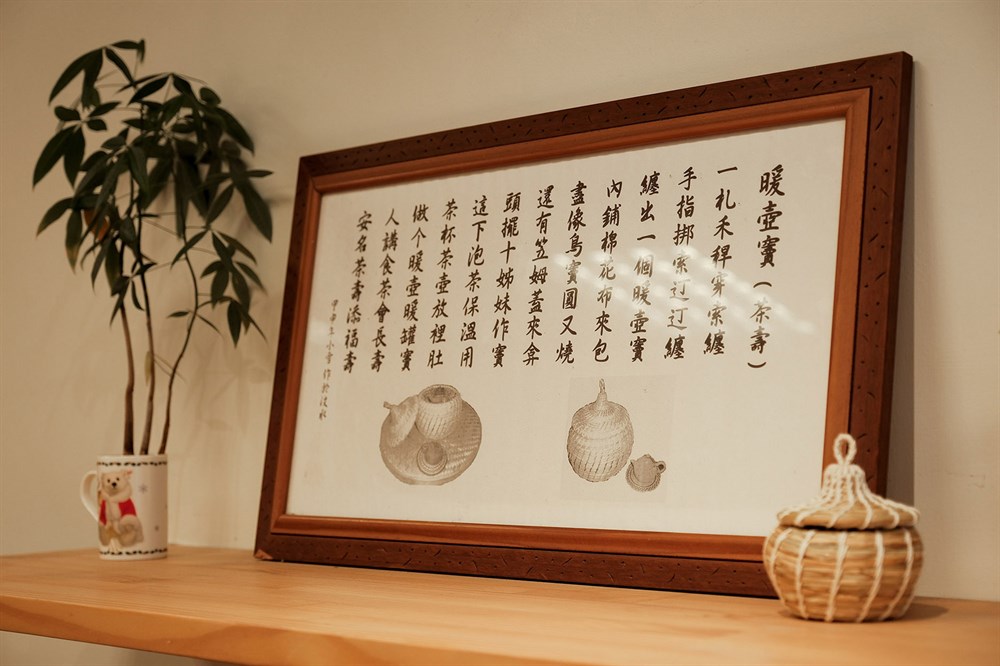 暖壺寶(茶壽)
一札禾稈穿索纏
手指掷索辺辺纏
纏出一個暖壺寶
內鋪棉花布來包
盡像鳥竇圓又燒
還有笠姆蓋來弇
頭擺十姊妹作寶
這下泡茶保溫用
茶杯茶壺放裡肚
做个暖壺暖罐寶
人講食茶會長壽
安名茶壽添福壽
甲申年小寒作於淡水